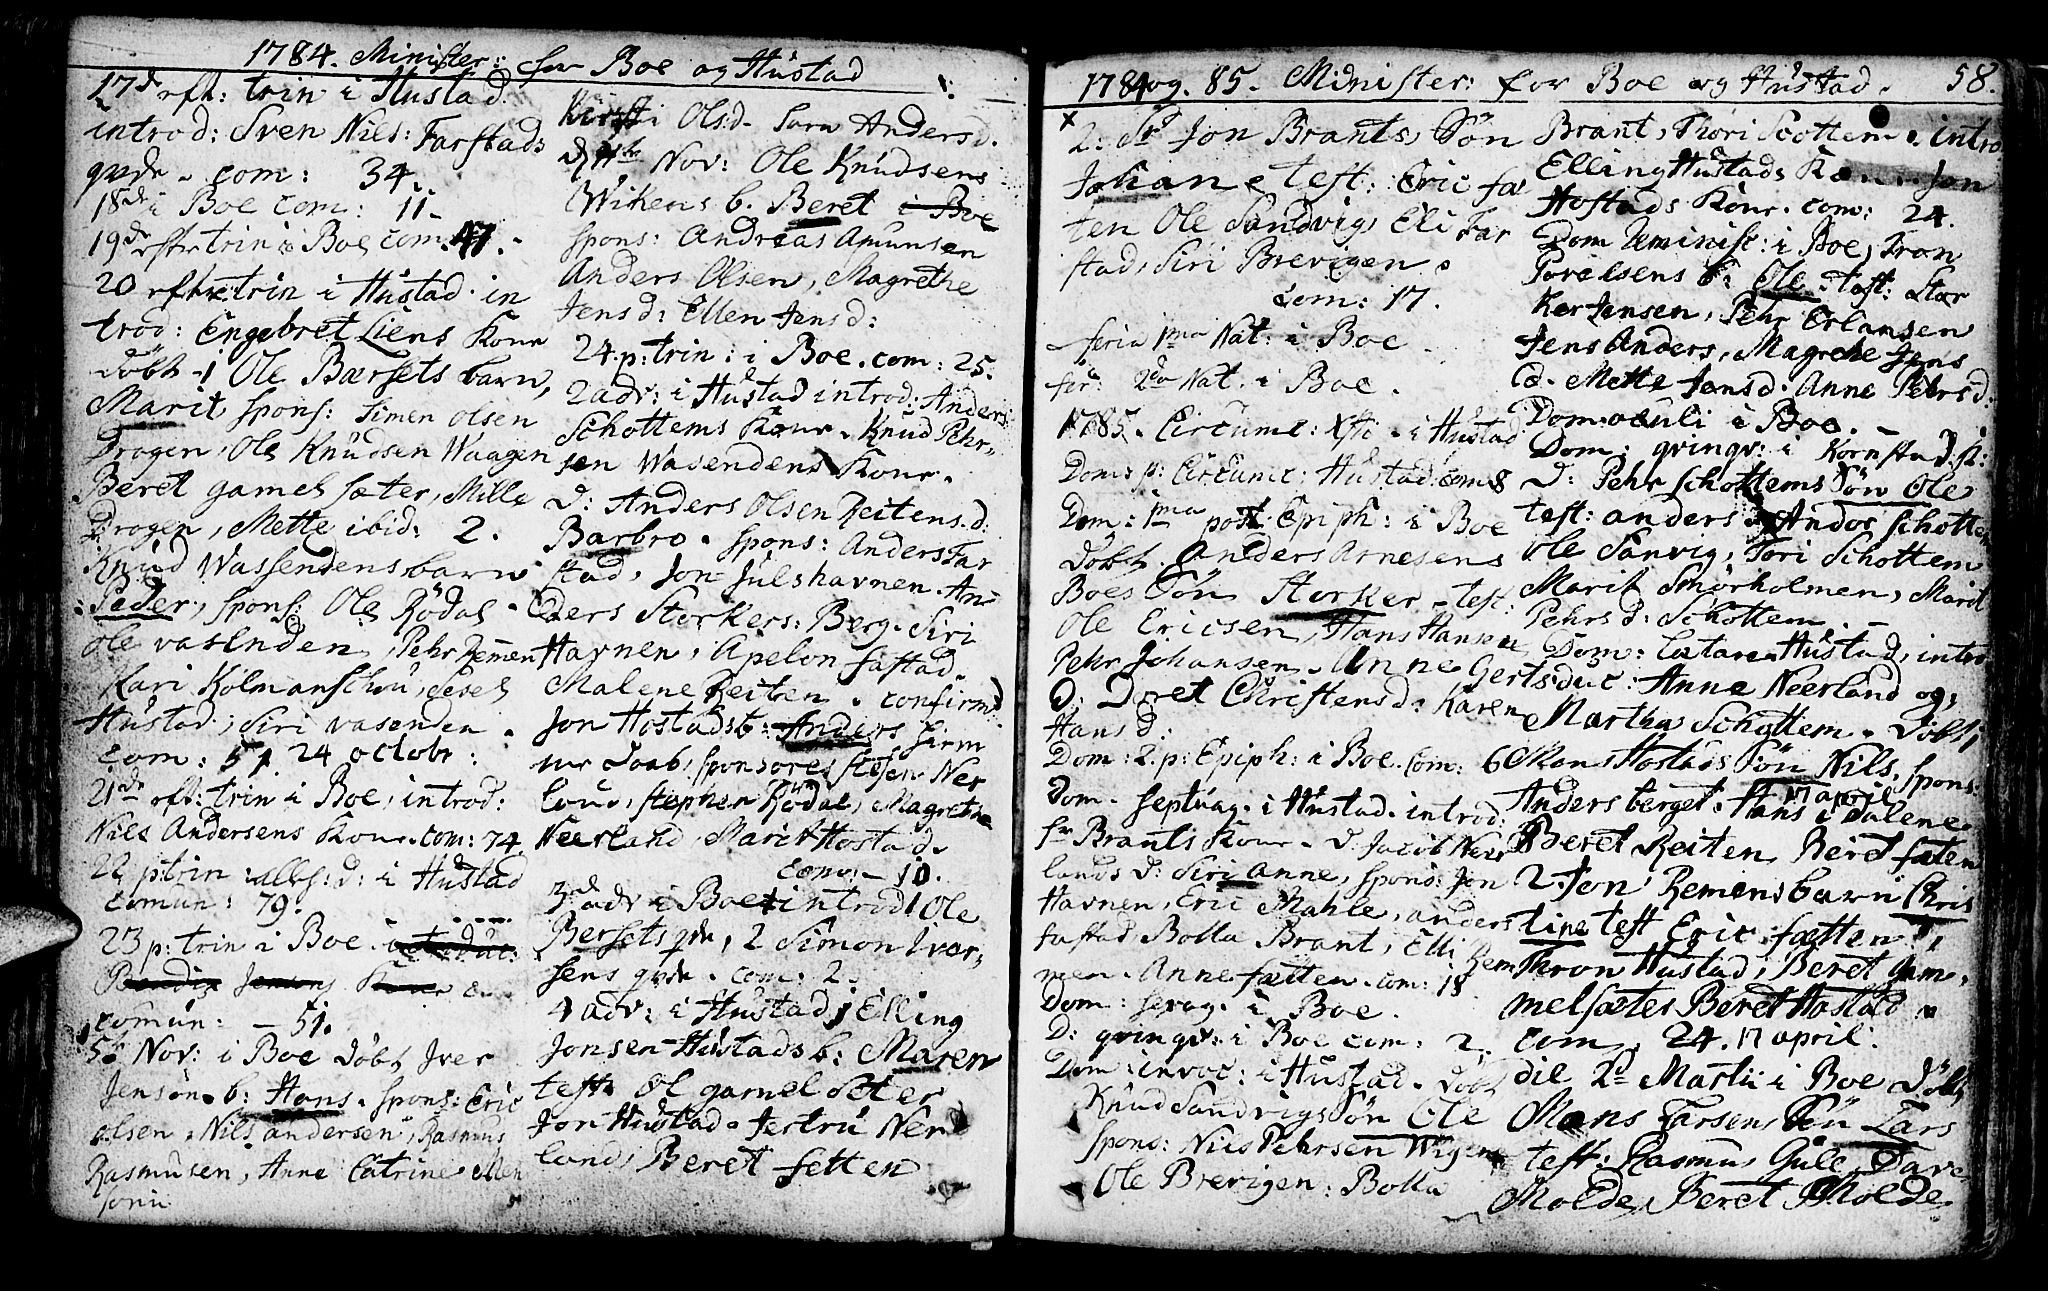 1784. Minister: for Boe og Hustad
17de eft: trin i Hustad
introd: Sven Nils: Farstads
qvde. com: 34
18de i Boe com: 11-
19de eftr trin i Boe com. 47.
20 eftr trin i Hustad. in
trod: Engebret Liens Kone
döbt 1 Ole Bærsets barn,
Marit spons: Simen Olsen
Drogen, Ole Knudsen Waagen
Beret gamelsæter, Mille
Drogen, Mette ibid: 2.
Knud Wassendens barn
Peder, spons: Ole Rödal.
Ole vasenden, Pehr Remen
Kari Kolmanschou,
Hustad, Siri vasenden.
com: 57. 24 octobr:
21de eft: trin i Boe, introd:
Nils Andersens Kone. com: 74
22 p: trin: i Hustad
comun: 79.
23 p: trin i Boe.
comun: - 51.
5te Nov: i Boe döbt Iver
Jensøn b: Hans. spons: Eric
olsen, Nils andersen, Rasmus
Rasmusen, Anne Catrine
Kirsti Olsd. Sara Andersd.
d 11te Nov: Ole Knudsens
Wikens b. Beret i Boe
spons: Andreas Amunsen
Anders Olsen, Magrethe
Jensd: Ellen Jensd:
24 p: trin: i Boe. com: 25.
2 adv: i Hustad introd: Anders
Schottems Kone. Knud Pehr-
sen Wasendens Kone.
D: Anders Olsen Reitens d:
Barbro. spons: Anders Far
stad, Jon Julshavnen. An-
ders Storkers: Berg. Siri
Havnen, Apelon fastad.
Malene Reiten. confirm
Jon Hostads b: Anders
me daab, sponsores Ner
land, stephen Rödal, Magrethe
Neerland, Marit Hostad.
com: - 10.
3d adv i Boe introd 1 Ole
Bersets qvde, 2 Simon Iver-
sens qvde. com: 2.
4 adv: i Hustad 1 Elling
Jonsen Hustads b: Maren
test: Ol gamelsæter
Jon Hustad. Jertru Ner
land, Beret fetten
1784 og. 85. Minister: for Boe og Hustad. 58.
2: Sr Jon Brants, Søn
Johan. test: Eric fæt
ten Ole Sandvig, Eli Far
stad, Siri Brevigen.
com: 17.
feria 1ma Nat: i Boe
fer: 2da Nat. i Boe.
1785. Circumc: Xsti. i Hustad
Dom: p: Circumc: Hustad com: 8
Dom: 1ma post Epiph: i Boe
döbt Anders Arnesens
Boes Søn Storker. test:
Ole Ericsen, Hans Hansen
Pehr Johansen. Anne Gerts
D: Doret Christensd: Karen
Hans d:
Dom: 2. p: Epiph: i Boe. com: 6
Dom. septuag. i Hustad. introd:
Sr Brants Kone. D: Jacob Neer
lands d: Siri Anne, spons: Jon
Havnen, Eric Mahle, anders
fastad, Bolla Brant, Elli Rem
men. Anne fætten. com: 18
Dom: sexag. i Boe.
D: qvinqv: i Boe com: 2.
Dom: invoc: i Hustad. döbt
Knud Sandvigs Søn Ole
spons: Nils Pehrsen Wigen
Ole Brevigen: Bolla
Brant, Thori Scottem. intro
Elling Hustads Jon
Hostads Kone. com: 24.
Dom Reminisc: i Boe, Tron
Torelsens b: Ole. Test: Stor
ker Jensen, Pehr Erlansen
Jens Anders, Magrethe Jens
d. Mette Jensd: Anne Pehrsd:
Dom oculi i Boe.
Dom: qvinqv: i Kornstad
D: Pehr Schottems Søn Ole
test: anders Andor schottem
Ole Sanvig, Tori Schottem
Marit Smörholmen, Marit
Pehrsd: Schottem.
Dom: Lætare Hustad, intro
duc: Anne Neerland og,
Martha Schottem. Döbt 1
Mons Hostads Søn Nils, spons:
17 april
Anders berget. Hans i Dalene
Beret Reiten, Beret fæten
2. Jon Remens barn Chris
tine test Eric fætten
Thron Hustad, Beret Gam,
melsæter Beret Hostad.
com, 24. 17 april.
die 2d Martii i Boe döbt
Mons Larsens Søn Lars
test: Rasmus Gule,
Molde, Beret Molde